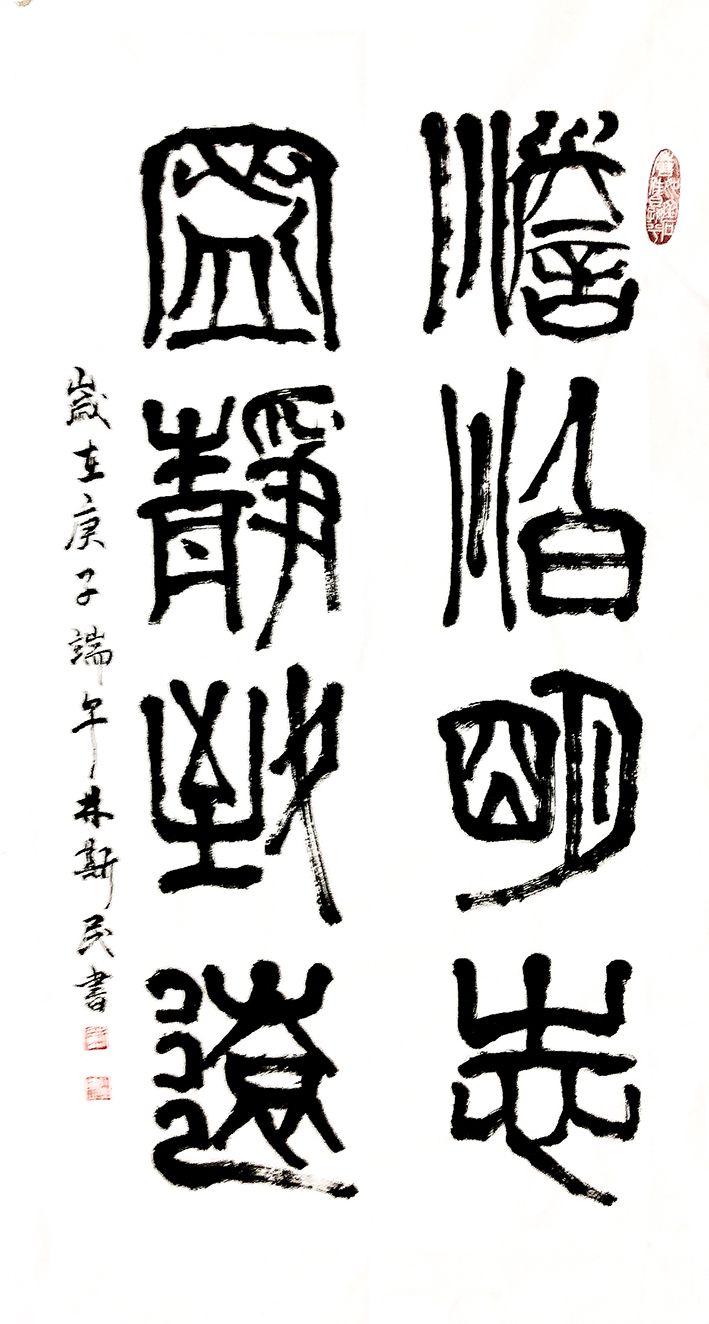 澹泊明志
寧靜致遠
歲在庚子端午林斯民書